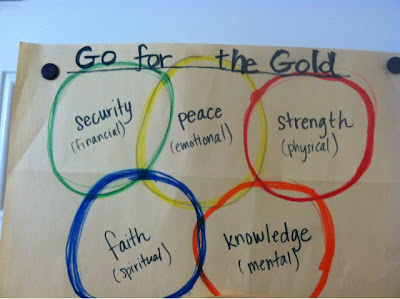 Go for the Gold
security
(financial)
peace
(emotional)
strength
(physical)
faith
(spiritual)
knowledge
(mental)